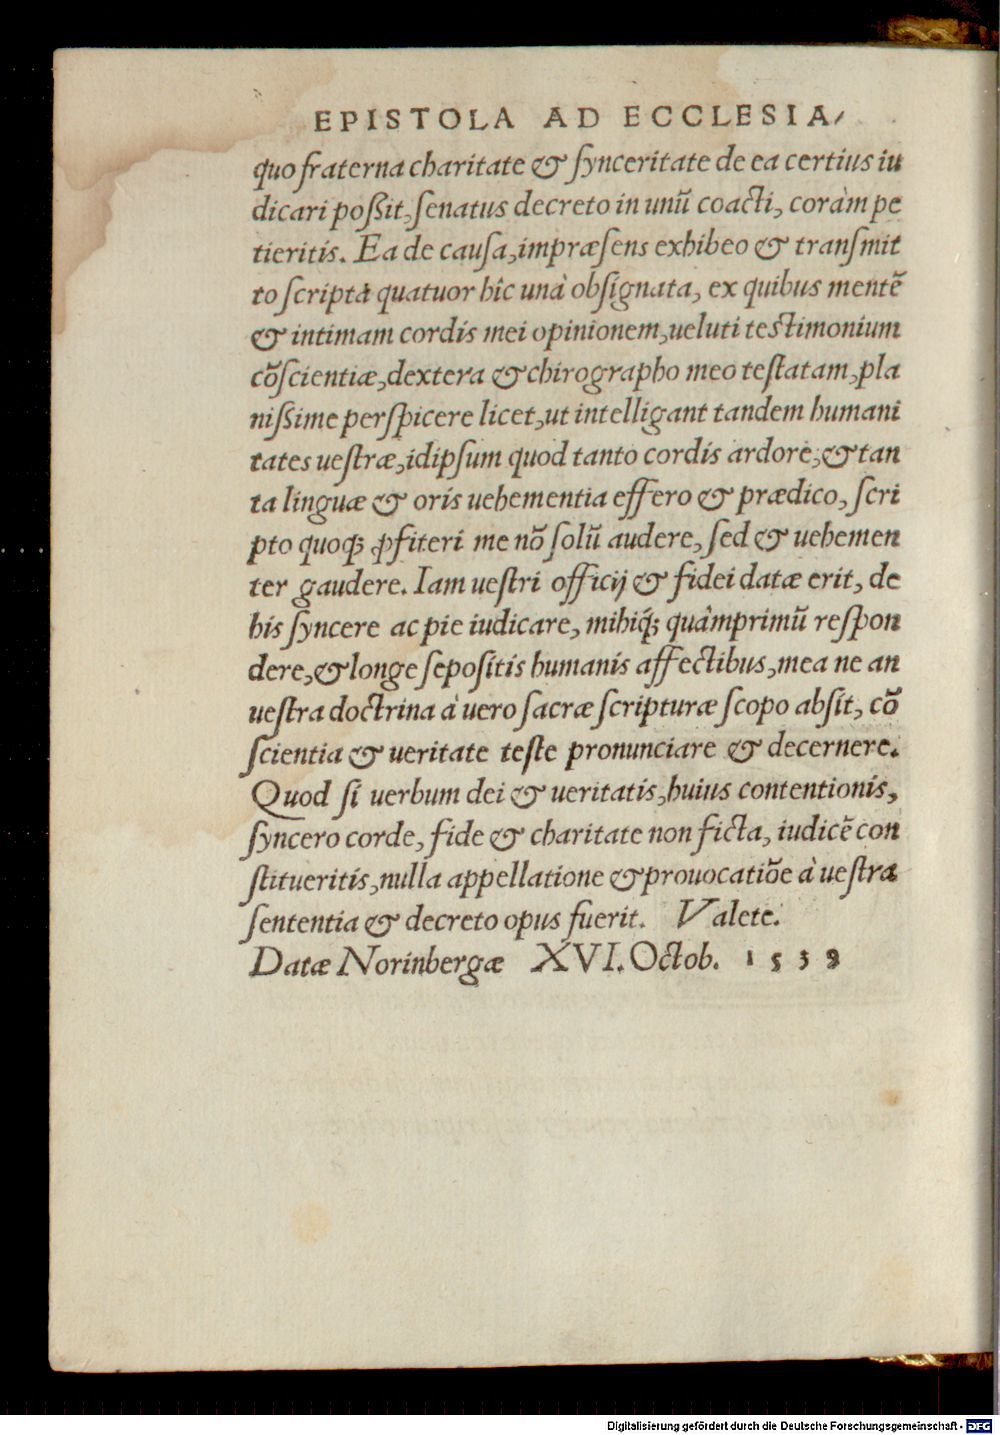 EPISTOLA AD ECCLESIA/
quo fraterna charitate & synceritate de ea certius iu
dicari poßit, senatus decreto in unũ coacti, coràm pe
tieritis. Ea de causa, impræsens exhibeo & transmit
to scripta quatuor hîc unà obsignata, ex quibus mentẽ
& intimam cordis mei opinionem, ueluti testimonium
cõscientiæ, dextera & chirographo meo testatam, pla
nißime perspicere licet, ut intelligant tandem humani
tates uestræ, idipsum quod tanto cordis ardore, & tan
ta linguæ & oris uehementia effero & prædico, scri
pto quoqꝫ ꝓfiteri me nõ solũ audere, sed & uehemen
ter gaudere. Iam uestri officij & fidei datæ erit, de
his syncere ac pie iudicare, mihiq́ꝫ quàmprimũ respon
dere, & longe sepositis humanis affectibus, mea ne an
uestra doctrina à uero sacræ scripturæ scopo absit, cõ
scientia & ueritate teste pronunciare & decernere.
Quod si uerbum dei & ueritatis, huius contentionis,
syncero corde, fide & charitate non ficta, iudicẽ con
stitueritis, nulla appellatione & prouocatiõe à uestra
sententia & decreto opus fuerit. Valete.
Datæ Norinbergæ XVI. Octob. 1539
Digitalisierung gefördert durch die Deutsche Forschungsgemeinschaft - DFG